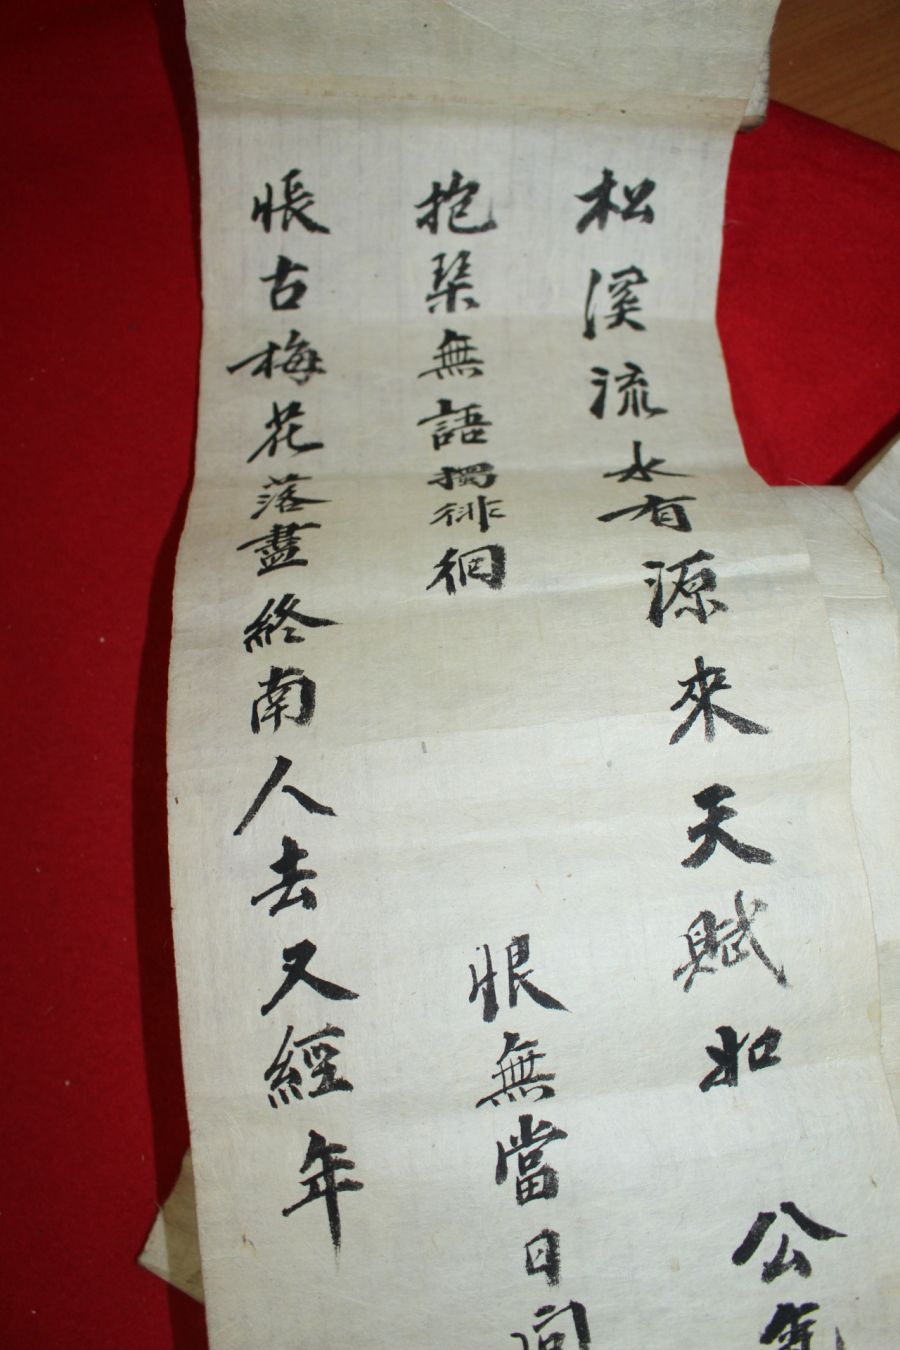 松溪流水有源來天賦如 公氣
抱琹無語獨徘徊 恨無當日同
悵古梅花落盡終南人去又經年